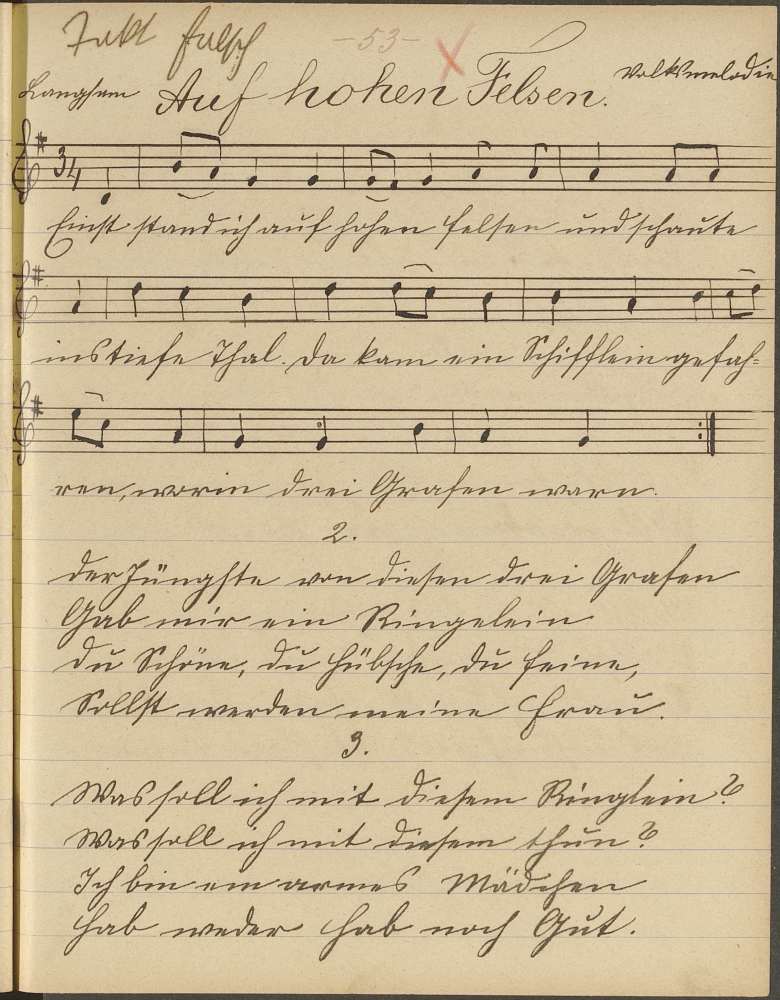 Takt falsch
-53-
Langsam Auf hohen Felsen. Volksmelodie
3/4
Einst stand ich auf hohen Felsen und schaute
ins tiefe Thal. Da kam ein Schifflein gefah=
ren, worin drei Grafen warn.
2.
Der Jüngste von diesen drei Grafen
Gab mir ein Ringelein
Du Schöne, du hübsche, du feine,
Sollst werden meine Frau.
3.
Was soll ich mit diesem Ringlein?
Was soll ich mit diesem thun?
Ich bin ein armes Mädchen
Hab weder Hab noch Gut.